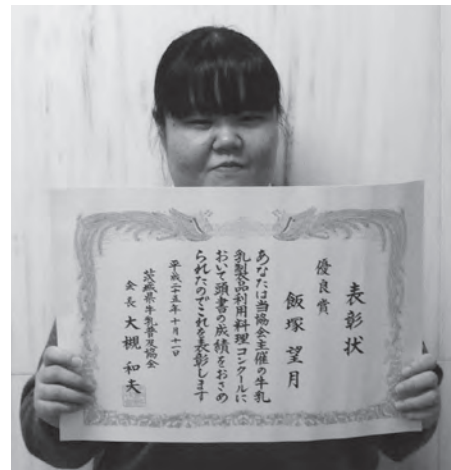 表彰状
優良賞
飯塚望月
あなたは当協会主催の牛乳
乳製品利用料理コンクールに
おいて頭書の成績をおさめ
られたのでこれを表彰します
平成二十五年十月十一日
茨城県牛乳普及協会
会長 大槻和夫